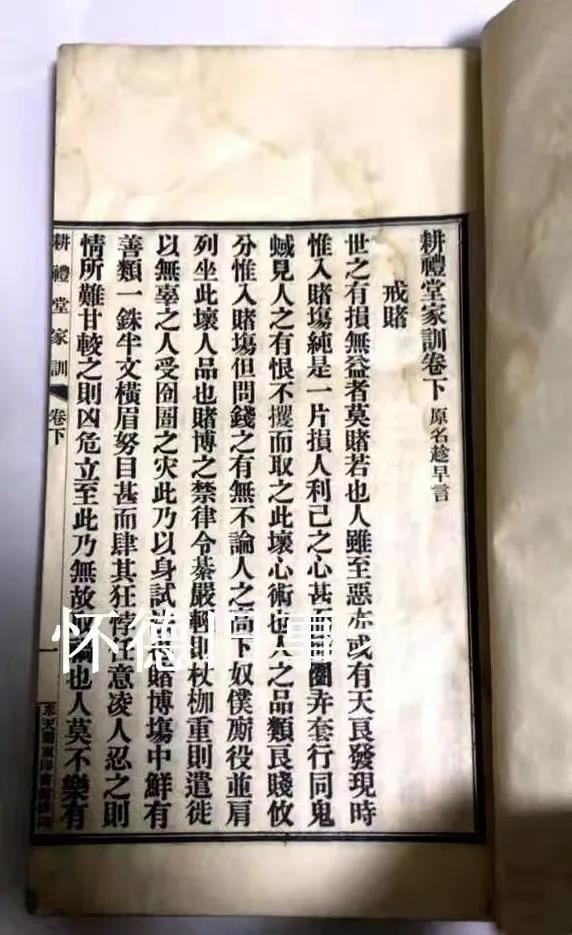 耕禮堂家訓卷下 原名趁早言
戒賭
世之有損無益者莫賭若也人雖至惡亦或有天良發現時
惟入賭塲純是一片損人利己之心甚圈弄套行同鬼
蜮見人之有恨不攫而取之此壞心術也人之品類良賤攸
分惟入賭塲但問錢之有無不論人之高下奴僕廝役並肩
列坐此壞人品也賭博之禁律令綦嚴輕則杖枷重則遣徙
以無辜之人受囹圄之灾此乃以身試賭博塲中鮮有
善類一銖半文橫眉努目甚而肆其狂悖任意凌人忍之則
情所難甘較之則凶危立至此乃無故也人莫不樂有
耕禮堂家訓 卷下 一
怀德旧事